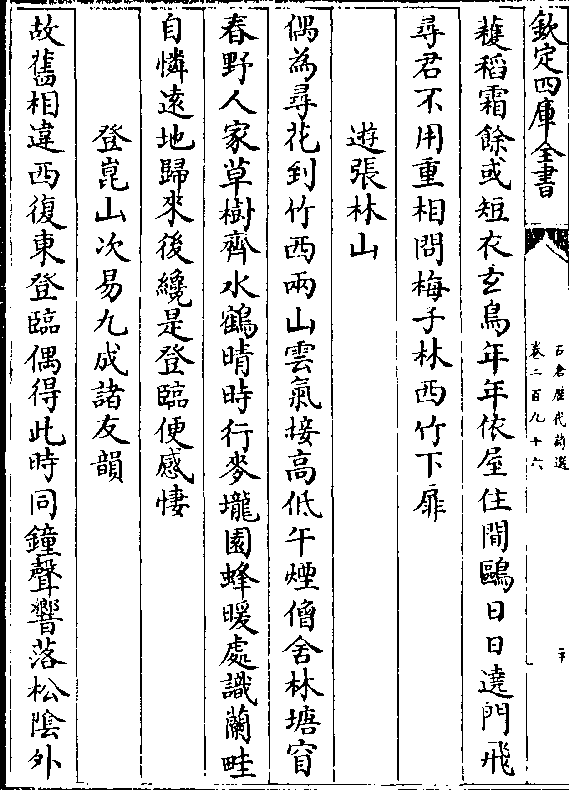 欽定四庫全書
石倉歴代詩選
卷二百九十六
穫稻霜餘或短衣玄鳥年年依屋住間鷗日日遶門飛
尋君不用重相問梅子林西竹下扉
遊張林山
偶為尋花到竹西兩山雲氣接高低午煙僧舍林塘窅
春野人家草樹齊水鶴晴時行麥壠園蜂暖處識蘭畦
自憐遠地歸來後纔是登臨便感悽
登崑山次易九成諸友韻
故舊相違西復東登臨偶得此時同鐘聲響落松陰外